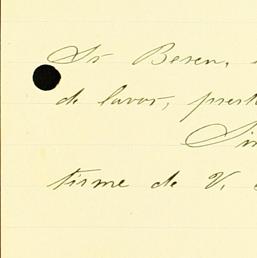 Sr Beren,
de lavor, prest
Sin
tisme de V.